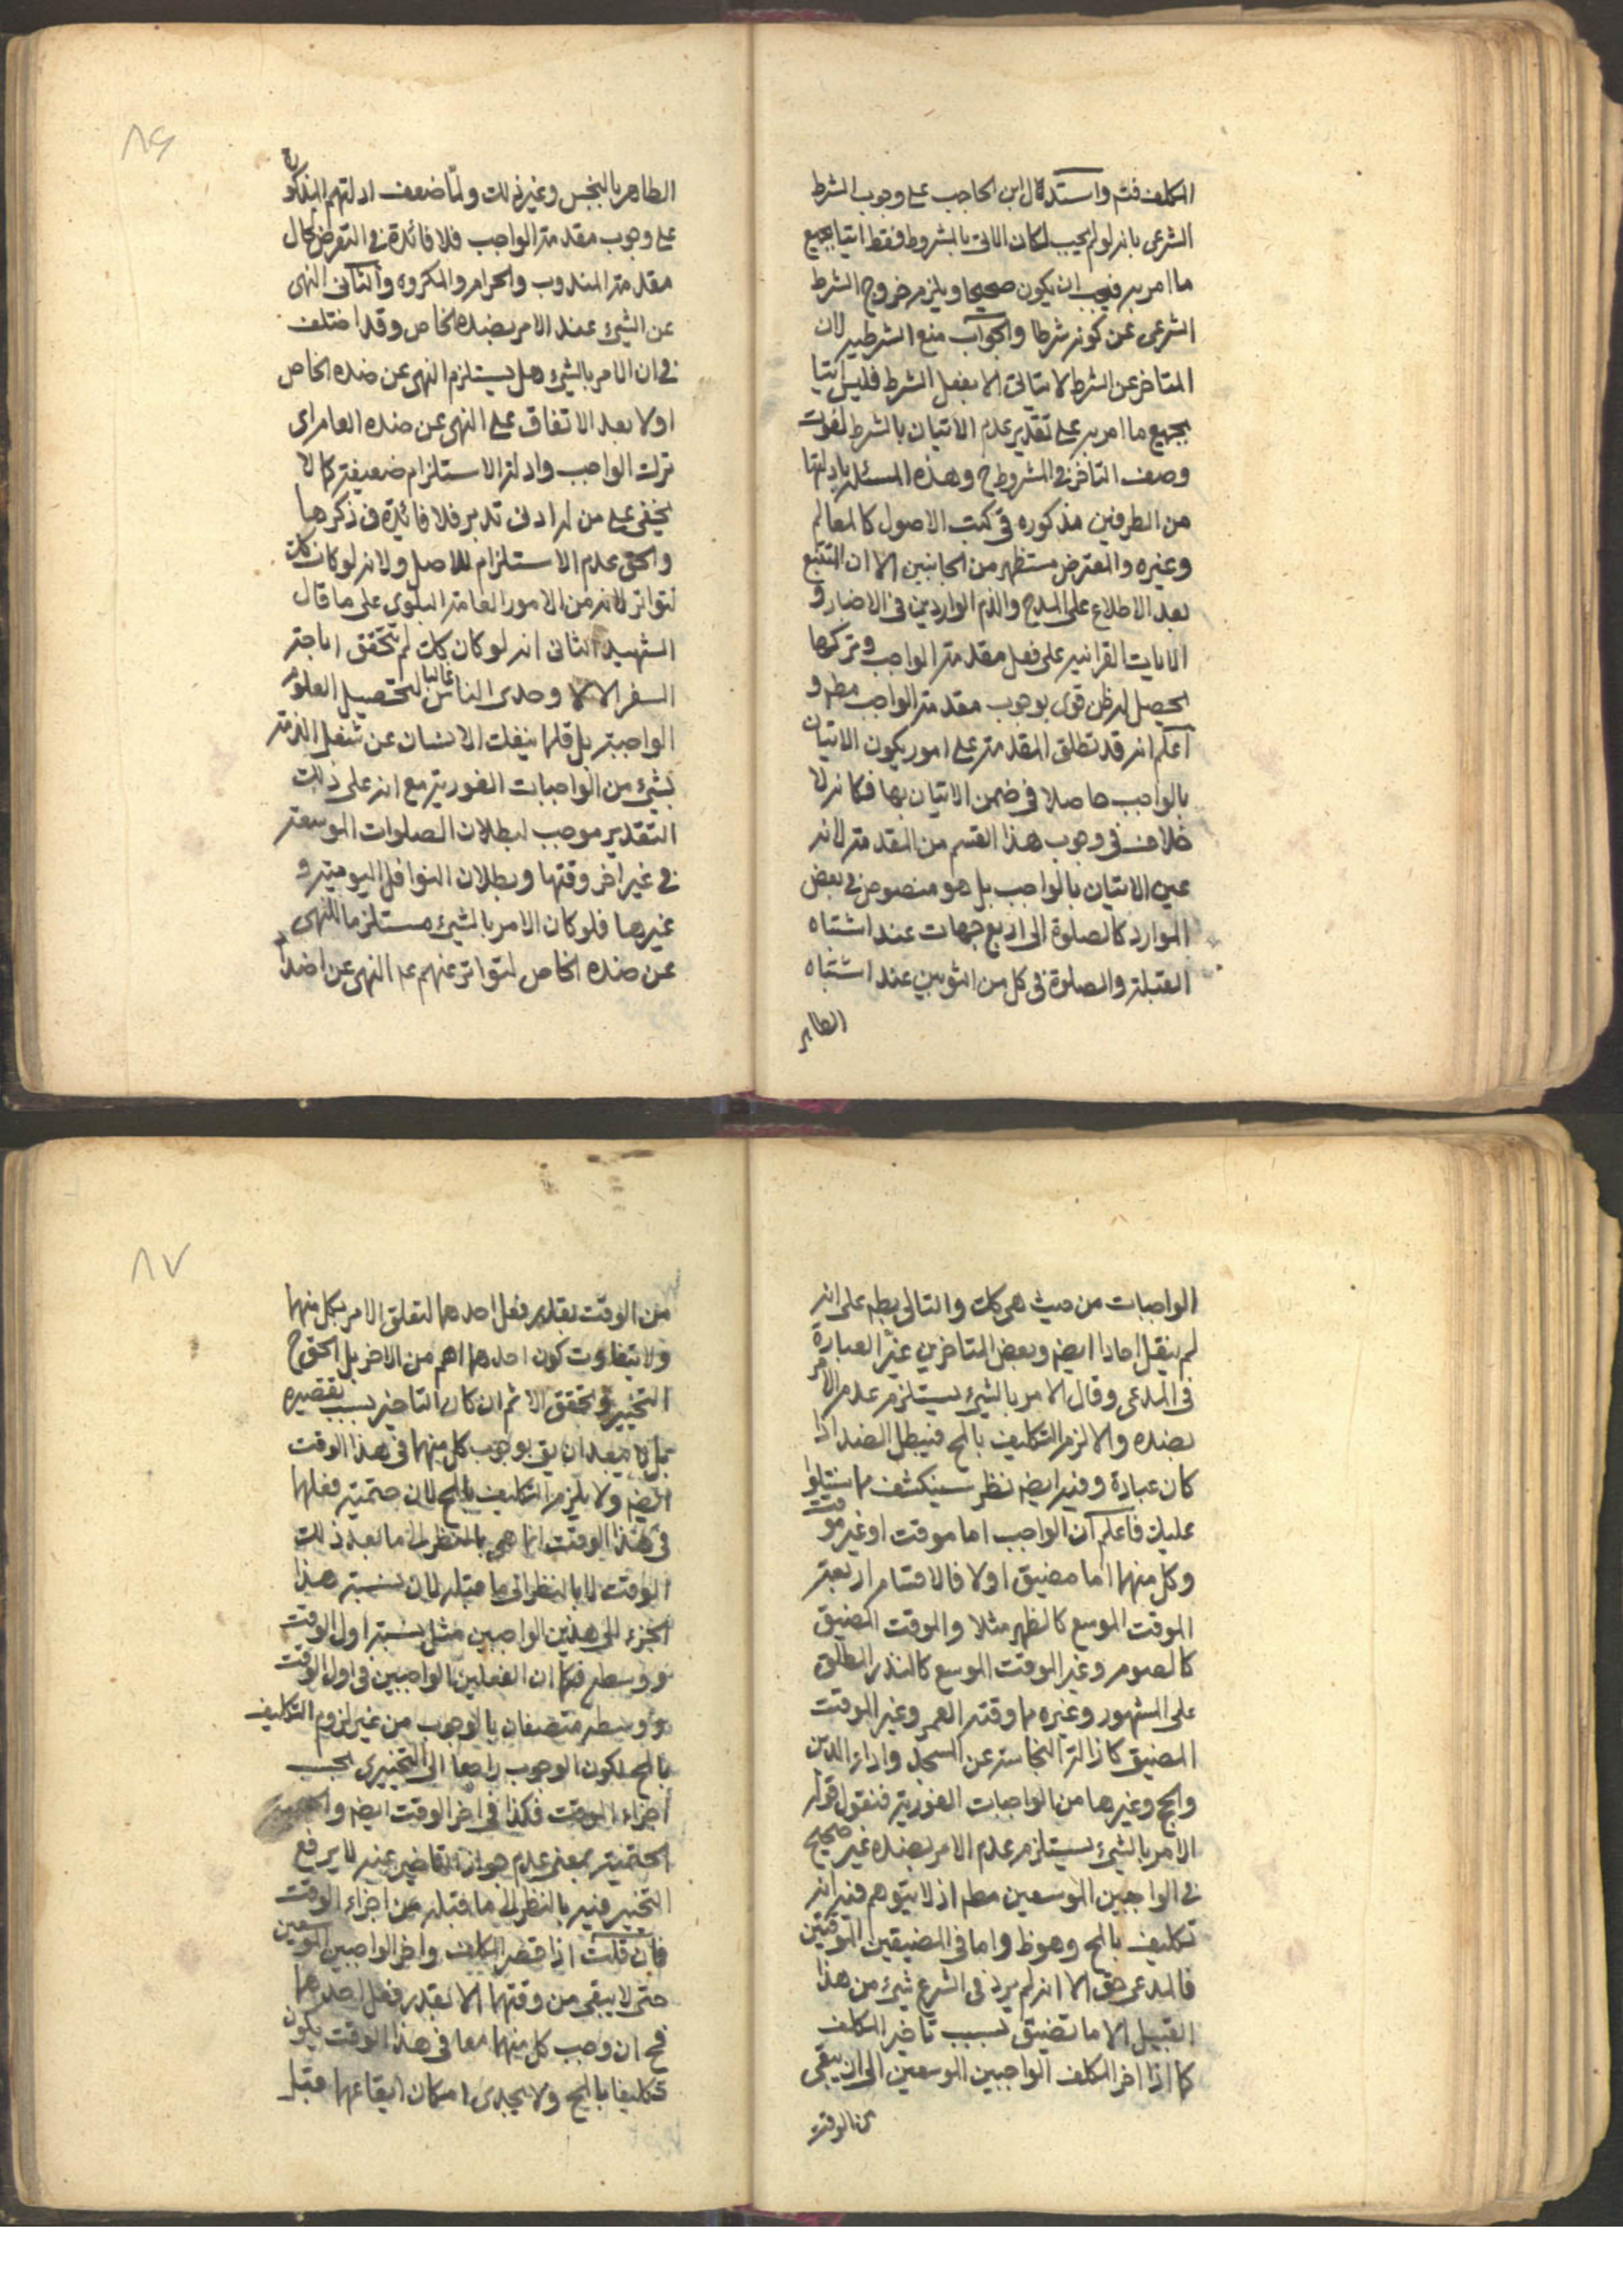 المكلف فتم واستدلال ابن الحاجب على وجوب الشرط
الشرعى بانه لو لم يجب لكان الاتى بالمشروط فقط اتيا بجميع
ما امر به فيجب ان يكون صحيحا ويلزم خروج الشرط
الشرعى عن كونه شرطا والجواب منع الشرطيه لان
المتاخر عن الشرط لا يتاتى الا بفعل الشرط فليس اتيا
بجميع ما امر به على تقدير عدم الاتيان بالشرط لفوت
وصف التاخر فى المشروط ح وهذه المسئله بادلتها
من الطرفين مذكوره فى كتب الاصول كالمعالم
وغيره والمعترض مستظهر من الجانبين الا ان المتتبع
بعد الاطلاع على المدح والذم الواردين فى الاخبار و
الايات القرانيه على فعل مقدمة الواجب وتركها
يحصل له ظن قوى بوجوب مقدمة الواجب مطم و
اعلم انه قد تطلق المقدمة على امور يكون الاتيان
بالواجب حاصلا فى ضمن الاتيان بها فكانه لا
خلاف فى وجوب هذا القسم من المقدمة لانه
عين الاتيان بالواجب بل هو منصوص فى بعض
الموارد كالصلوة الى اربع جهات عند اشتباه
القبلة والصلوة فى كل من الثوبين عند اشتباه
الطاهر
٨٦
الطاهر بالنجس وغير ذلك ولما ضعف ادلتهم المذكورة
على وجوب مقدمة الواجب فلا فائدة فى التعرض لحال
مقدمة المندوب والحرام والمكروه والثانى النهى
عن الشىء عند الامر بضده الخاص وقد اختلف
فى ان الامر بالشىء هل يستلزم النهى عن ضده الخاص
اولا بعد الاتفاق على النهى عن ضده العام اى
ترك الواجب وادلة الاستلزام ضعيفة كما لا
يخفى على من له ادنى تدبر فلا فائدة فى ذكرها
والحق عدم الاستلزام للاصل ولانه لو كان كك
لتواتر لانه من الامور العامة البلوى على ما قال
الشهيد الثانى انه لو كان كك لم يتحقق اباحة
السفر الا لاوحدى الناس غالبا لتحصيل العلوم
الواجبة بل قلما ينفك الانسان عن شغل الذمة
بشىء من الواجبات الفورية مع انه على ذلك
التقدير موجب لبطلان الصلوات الموسعة
فى غير اخر وقتها وبطلان النوافل اليومية و
غيرها فلو كان الامر بالشىء مستلزما للنهى
عن ضده الخاص لتواتر عنهم ع النهى عن اضداد
الواجبات من حيث هى كك والتالى بطم على انه
لم ينقل احادا ايضم وبعض المتاخرين غيّر العبارة
فى المدعى وقال الامر بالشىء يستلزم عدم الامر
بضده والا لزم التكليف بالمح فيبطل الضد اذا
كان عبادة وفيه ايضم نظر سينكشف مما سنتلوا
عليك فاعلم ان الواجب اما موقت او غير موقت
وكل منهما اما مضيق اولا فالاقسام اربعة
الموقت الموسع كالظهر مثلا والموقت المضيق
كالصوم وغير الموقت الموسع كالنذر المطلق
على المشهور وغيره مما وقته العمر وغير الموقت
المضيق كازالة النجاسة عن المسجد واداء الدين
والحج وغيرها من الواجبات الفورية فنقول قوله
الامر بالشىء يستلزم عدم الامر بضده غير صحيح
فى الواجبين الموسعين مطم اذ لا يتوهم فيه انه
تكليف بالمح وهو ظ واما فى المضيقين الموقتين
فالمدعى حق الا انه لم يرد فى الشرع شىء من هذا
القبيل الا ما تضيق بسبب تاخير المكلف
كما اذا اخر المكلف الواجبين الموسعين الى ان يبقى
من الوقت
٨٧
من الوقت بقدر فعل احدهما لتعلق الامر بكل منهما
ولا يتفاوت كون احدهما اهم من الاخر بل الحق ح
التخيير وتحقق الاثم ان كان التاخير بسبب تقصيره
بل لا يبعد ان يق بوجوب كل منهما فى هذا الوقت
ايضم ولا يلزم التكليف بالمح لان حتمية فعلهما
فى هذا الوقت انما هى بالنظر الى ما بعد ذلك
الوقت لا بالنظر الى ما قبله لان نسبة هذا
الجزء الى هذين الواجبين مثل نسبة اول الوقت
ووسطه فكما ان الفعلين الواجبين فى اول الوقت
ووسطه متصفان بالوجوب من غير لزوم التكليف
بالمح لكون الوجوب راجعا الى التخييرى بحسب
اجزاء الوقت فكذا فى اخر الوقت ايضم و
الحتمية بمعنى عدم جواز التاخير عنه لا يرفع
التخيير فيه بالنظر الى ما قبله من اجزاء الوقت
فان قلت اذا قصر المكلف واخر الواجبين الموسعين
حتى لا يبقى من وقتهما الا بقدر فعل احدهما
فح ان وجب كل منهما معا فى هذا الوقت يكون
تكليفا بالمح ولا يجدى امكان ايقاعهما قبل